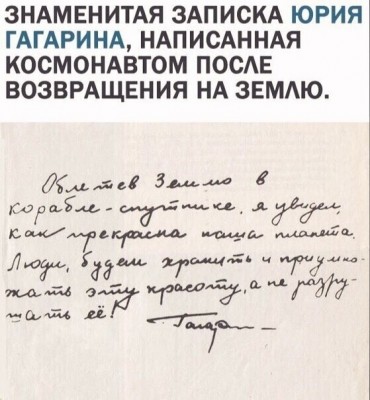 ЗНАМЕНИТАЯ ЗАПИСКА ЮРИЯ
ГАГАРИНА, НАПИСАННАЯ
КОСМОНАВТОМ ПОСЛЕ
ВОЗВРАЩЕНИЯ НА ЗЕМЛЮ.
Облетев Землю в
корабле-спутнике, я увидел,
как прекрасна наша планета.
Люди, будем хранить и приумно-
жать эту красоту, а не разру-
шать её!
Гагарин